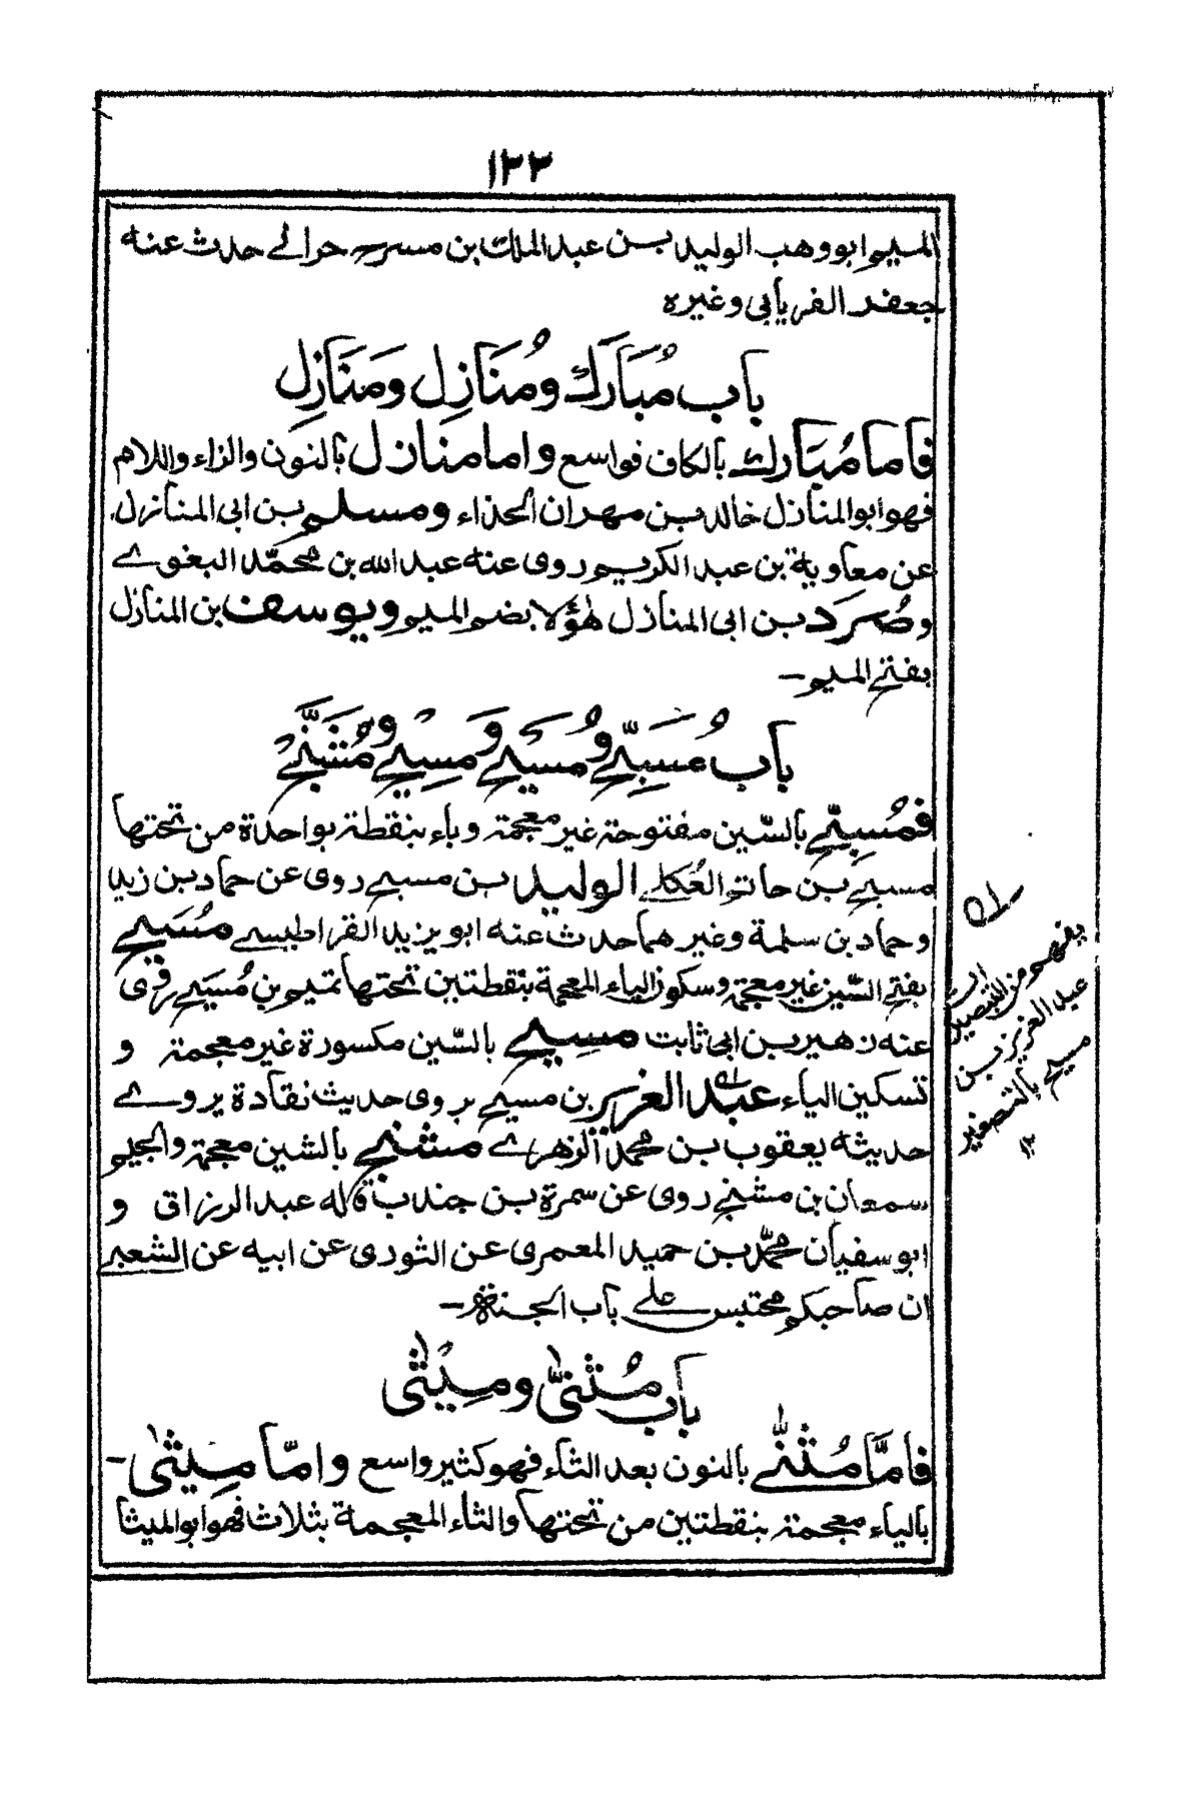 ١٢٢
الميم ابو وهب الوليد بن عبد الملك بن مسرح حرانے حدث عنه
جعفر الفريابي وغيره
باب مُبَارَك ومُنَازِل ومَنَازِل
فاما مُبَارك بالكاف فواسع واما منازل بالنون والزاء واللام
فهو ابو المنازل خالد بن مهران الحذاء ومسلم بن ابى المنازل
عن معاوية بن عبد الكريم روى عنه عبد الله بن محمّد البغوے
وصُرَد بن ابى المنازل هٰؤلا بضم الميم ويوسف بن المنازل
بفتح الميم ـ
باب مُسَبِّح ومُسَيْح ومِسِيْح ومُشَنَّج
فمُسبِّح بالسّين مفتوحة غير معجمة وباء بنقطة بواحدة من تحتها
مسبح بن حاتم العُكلے الوليد بن مسبح روى عن حماد بن زيد
وحماد بن سلمة وغيرهما حدث عنه ابو يزيد القراطيسے مُسَيح
بفتح السّين غير معجمة وسكون الياء المعجمة بنقطتين تحتها تميم بن مُسَيح روى
عنه زهير بن ابى ثابت مسيح بالسّين مكسورة غير معجمة و
تسكين الياء عبد العزيز بن مسيح يروى حديث نقادة يروے
حديثه يعقوب بن محمد الزهرے مشنج بالشين معجمة والجيم
سمعان بن مشنج روى عن سمرة بن جندب قاله عبد الرزاق و
ابو سفيان محمّد بن حميد المعمرى عن الثورى عن ابيه عن الشعبے
ان صاحبكم محتبس علے باب الجنة ـ
باب مُثَنّىٰ ومِيْثىٰ
فامّا مُثنّٰے بالنون بعد الثاء فهو كثير واسع وامّا مِيثىٰ ـ
بالياء معجمة بنقطتين من تحتها والثاء المعجمة بثلاث فهو ابو الميثا
يفهم من التبصير ان
عبد العزيز بن
مسيح بالتصغير
١٢